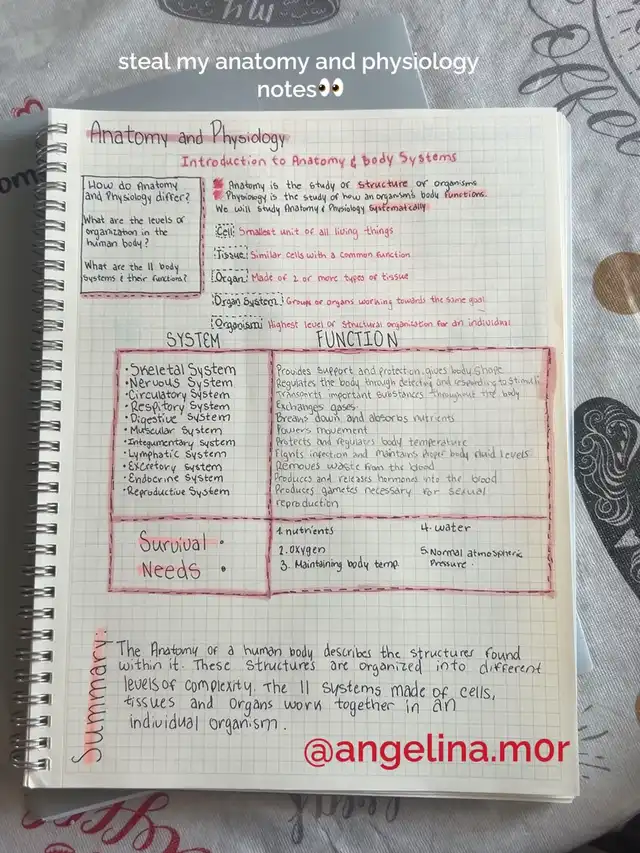 steal my anatomy and physiology
notes👀
Anatomy and Physiology
Introduction to Anatomy & Body Systems
How do Anatomy
and Physiology differ?
What are the levels of
organization in the
human body?
What are the 11 body
systems & their functions?
Anatomy is the study of structure of organisms
Physiology is the study of how an organism's body functions.
We will study Anatomy & Physiology systematically
Cell: Smallest unit of all living things
Tissue: Similar cells with a common function.
Organ: Made of 2 or more types of tissue
Organ System: Groups of organs working towards the same goal
Organism: Highest level of structural organization for an individual
SYSTEM
FUNCTION
• Skeletal System
Provides support and protection, gives body shape
• Nervous System
Regulates the body through detecting and responding to stimuli
• Circulatory System
Transports important substances throughout the body
• Respitory System
Exchanges gases
• Digestive System
Breaks down and absorbs nutrients
• Muscular System
Powers movement
• Integumentary System
Protects and regulates body temperature
• Lymphatic System
Fights infection and maintains proper body fluid levels
• Excretory System
Removes waste from the blood
• Endocrine System
Produces and releases hormones into the blood
• Reproductive System
Produces gametes necessary for sexual
reproduction
Survival •
Needs •
1. nutrients
2. oxygen
3. Maintaining body temp
4. water
5. Normal atmospheric
Pressure.
Summary:
The Anatomy of a human body describes the structures found
within it. These structures are organized into different
levels of complexity. The 11 systems made of cells,
tissues and organs work together in an
individual organism.
@angelina.m0r